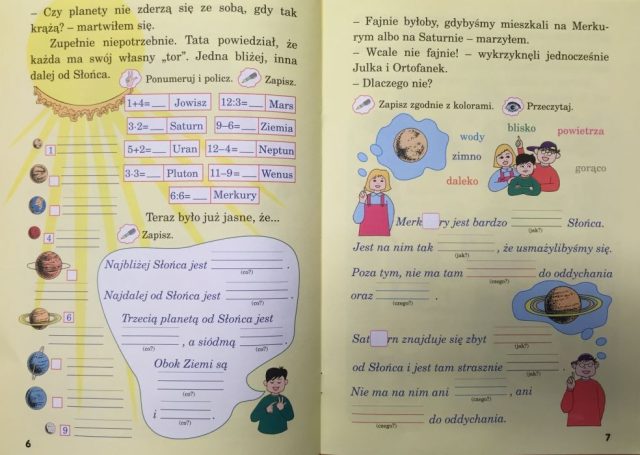 – Czy planety nie zderzą się ze sobą, gdy tak
krążą? – martwiłem się.
Zupełnie niepotrzebnie. Tata powiedział, że
każda ma swój własny „tor”. Jedna bliżej, inna
dalej od Słońca.
Ponumeruj i policz. Zapisz.
1+4=___ Jowisz 12:3=___ Mars
3·2=___ Saturn 9–6=___ Ziemia
5+2=___ Uran 12–4=___ Neptun
3·3=___ Pluton 11–9=___ Wenus
6:6=___ Merkury
Teraz było już jasne, że...
Zapisz.
1
4
6
9
Najbliżej Słońca jest ________ .
(co?)
Najdalej od Słońca jest ________ .
(co?)
Trzecią planetą od Słońca jest
________ , a siódmą ________ .
(co?) (co?)
Obok Ziemi są
________
(co?)
i ________ .
(co?)
6
– Fajnie byłoby, gdybyśmy mieszkali na Merku-
rym albo na Saturnie – marzyłem.
– Wcale nie fajnie! – wykrzyknęli jednocześnie
Julka i Ortofanek.
– Dlaczego nie?
Zapisz zgodnie z kolorami. Przeczytaj.
wody blisko powietrza
zimno
gorąco
daleko
Merk□ry jest bardzo ________ Słońca.
(jak?)
Jest na nim tak ________ , że usmażylibyśmy się.
(jak?)
Poza tym, nie ma tam ________ do oddychania
(czego?)
oraz ________ .
(czego?)
Sat□rn znajduje się zbyt ________
(jak?)
od Słońca i jest tam strasznie ________ .
(jak?)
Nie ma na nim ani ________ , ani
(czego?)
________ do oddychania.
(czego?)
7